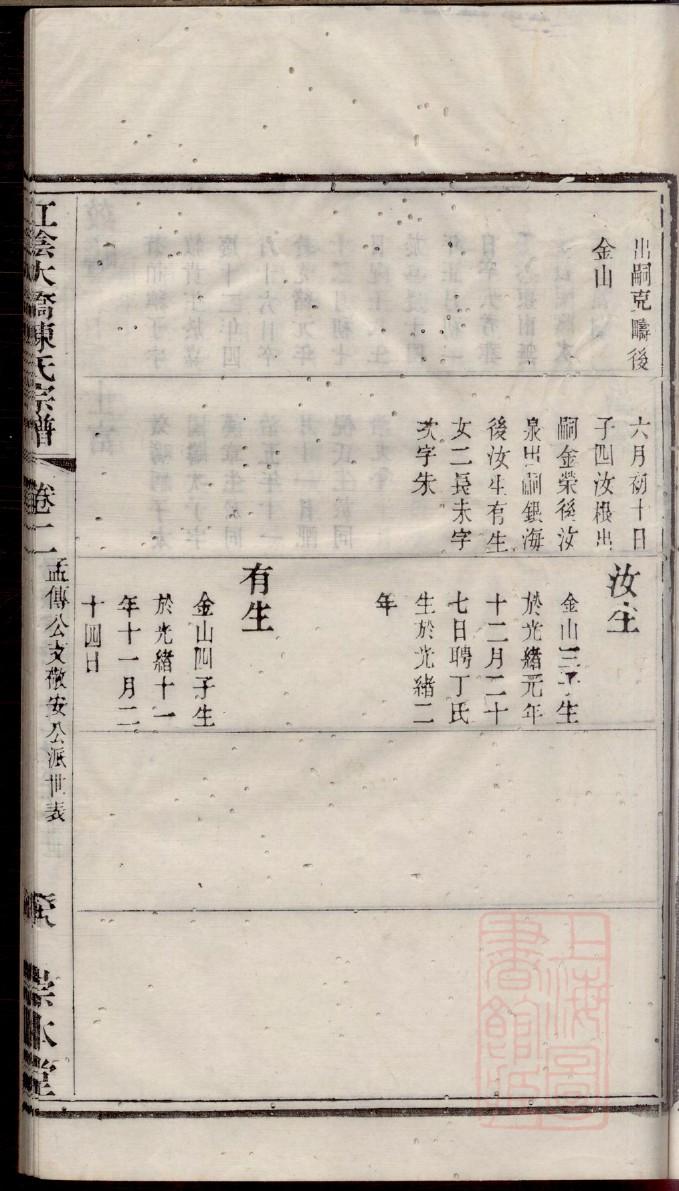 出嗣克疇後
金山
六月初十日
子四汝根出
嗣金榮後汝
泉出嗣銀海
後汝生有生
女二長未字
次字朱
汝生
金山三子生
於光緒元年
十二月二十
七日聘丁氏
生於光緒二
年
有生
金山四子生
於光緒十一
年十一月二
十四日
江陰大橋陳氏宗譜
卷二
孟傳公支敬安公派世表
崇本堂
上海圖書館藏